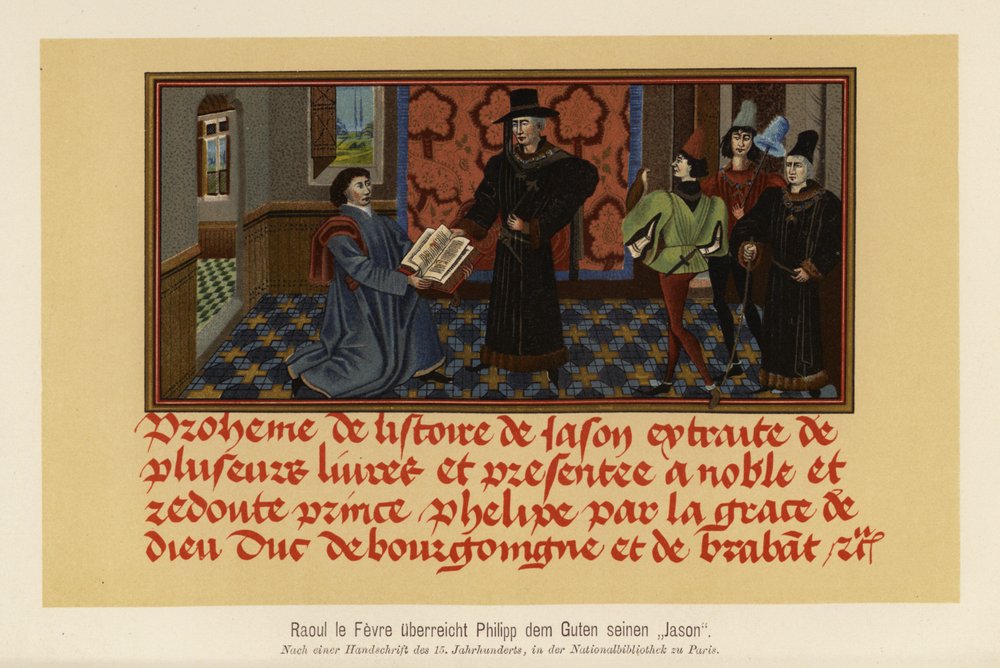 Proheme de listoire de Jason extraite de
pluseurs liures et presentee a noble et
redoute prince phelipe par la grace de
dieu Duc de bourgoingne et de brabāt
Raoul le Fèvre überreicht Philipp dem Guten seinen „Jason“.
Nach einer Handschrift des 15. Jahrhunderts, in der Nationalbibliothek zu Paris.